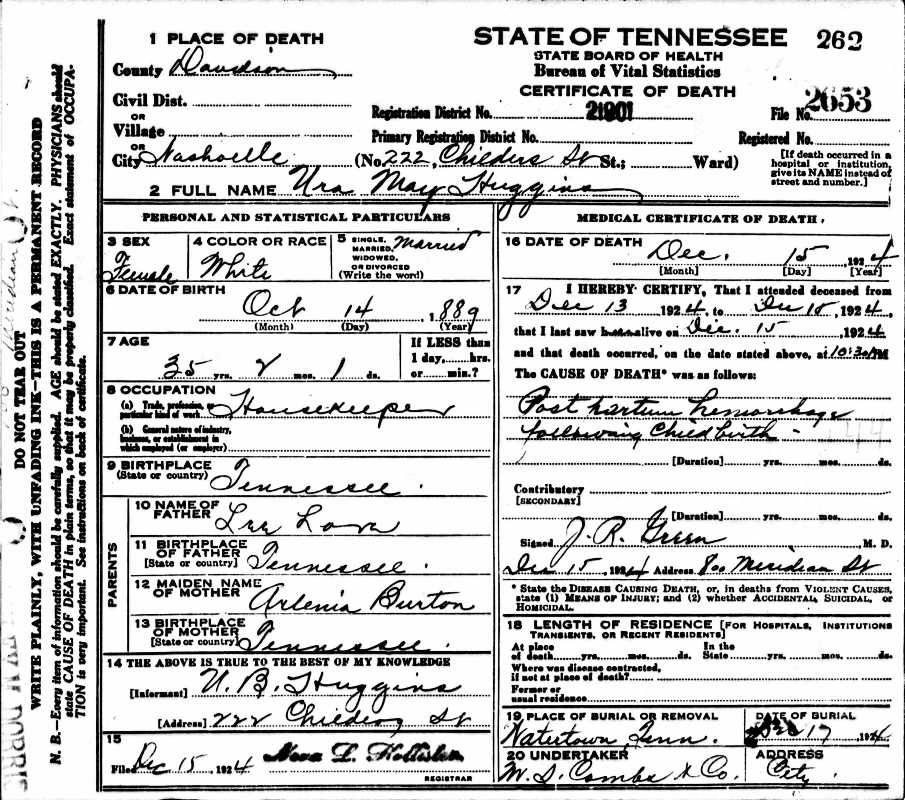 STATE OF TENNESSEE 262
STATE BOARD OF HEALTH
Bureau of Vital Statistics
CERTIFICATE OF DEATH
1 PLACE OF DEATH
County Davidson
Civil Dist.
OR
Village
OR
City Nashville (No. 222, Childers St St.; Ward)
Registration District No. 21901 File No. 2653
Primary Registration District No. Registered No.
[If death occurred in a hospital or institution, give its NAME instead of street and number.]
2 FULL NAME Ura May Huggins
PERSONAL AND STATISTICAL PARTICULARS
3 SEX
Female
4 COLOR OR RACE
White
5 SINGLE, MARRIED, WIDOWED, OR DIVORCED (Write the word)
Married
6 DATE OF BIRTH
Oct 14, 1889
(Month) (Day) (Year)
7 AGE
35 yrs. 2 mos. 1 ds.
If LESS than
1 day,......hrs.
or......min.?
8 OCCUPATION
(a) Trade, profession, or particular kind of work Housekeeper
(b) General nature of industry, business, or establishment in which employed (or employer)
9 BIRTHPLACE
(State or country) Tennessee.
PARENTS
10 NAME OF FATHER Lee
11 BIRTHPLACE OF FATHER
[State or country] Tennessee.
12 MAIDEN NAME OF MOTHER Artenia Burton
13 BIRTHPLACE OF MOTHER
[State or country] Tennessee
14 THE ABOVE IS TRUE TO THE BEST OF MY KNOWLEDGE
[Informant] U. B. Huggins
[Address] 222 Childers St
15
Filed Dec 15, 1924 Nova L. Hollister
REGISTRAR
MEDICAL CERTIFICATE OF DEATH.
16 DATE OF DEATH
Dec. 15, 1924
[Month] [Day] [Year]
17 I HEREBY CERTIFY, That I attended deceased from
Dec 13 1924, to Dec 15, 1924,
that I last saw h alive on Dec. 15 1924
and that death occurred, on the date stated above, at 10:30 PM
The CAUSE OF DEATH* was as follows:
Post partum hemorrhage
following Child birth -
[Duration] yrs. mos. ds.
Contributory
[SECONDARY]
[Duration] yrs. mos. ds.
Signed J. R. Green M. D.
Dec 15, 1924 Address 800 Meridian St
* State the DISEASE CAUSING DEATH, or, in deaths from VIOLENT CAUSES, state (1) MEANS OF INJURY; and (2) whether ACCIDENTAL, SUICIDAL, or HOMICIDAL.
18 LENGTH OF RESIDENCE [FOR HOSPITALS, INSTITUTIONS TRANSIENTS, OR RECENT RESIDENTS]
At place of death......yrs......mos......ds. In the State......yrs......mos......ds.
Where was disease contracted, if not at place of death?
Former or usual residence
19 PLACE OF BURIAL OR REMOVAL
Watertown Tenn.
DATE OF BURIAL
Dec 17, 1924
20 UNDERTAKER
M. S. Combs & Co.
ADDRESS
City
DO NOT TEAR OUT
WRITE PLAINLY, WITH UNFADING INK—THIS IS A PERMANENT RECORD
N. B.—Every item of information should be carefully supplied. AGE should be stated EXACTLY. PHYSICIANS should
state CAUSE OF DEATH in plain terms, so that it may be properly classified. Exact statement of OCCUPA-
TION is very important. See instructions on back of certificate.